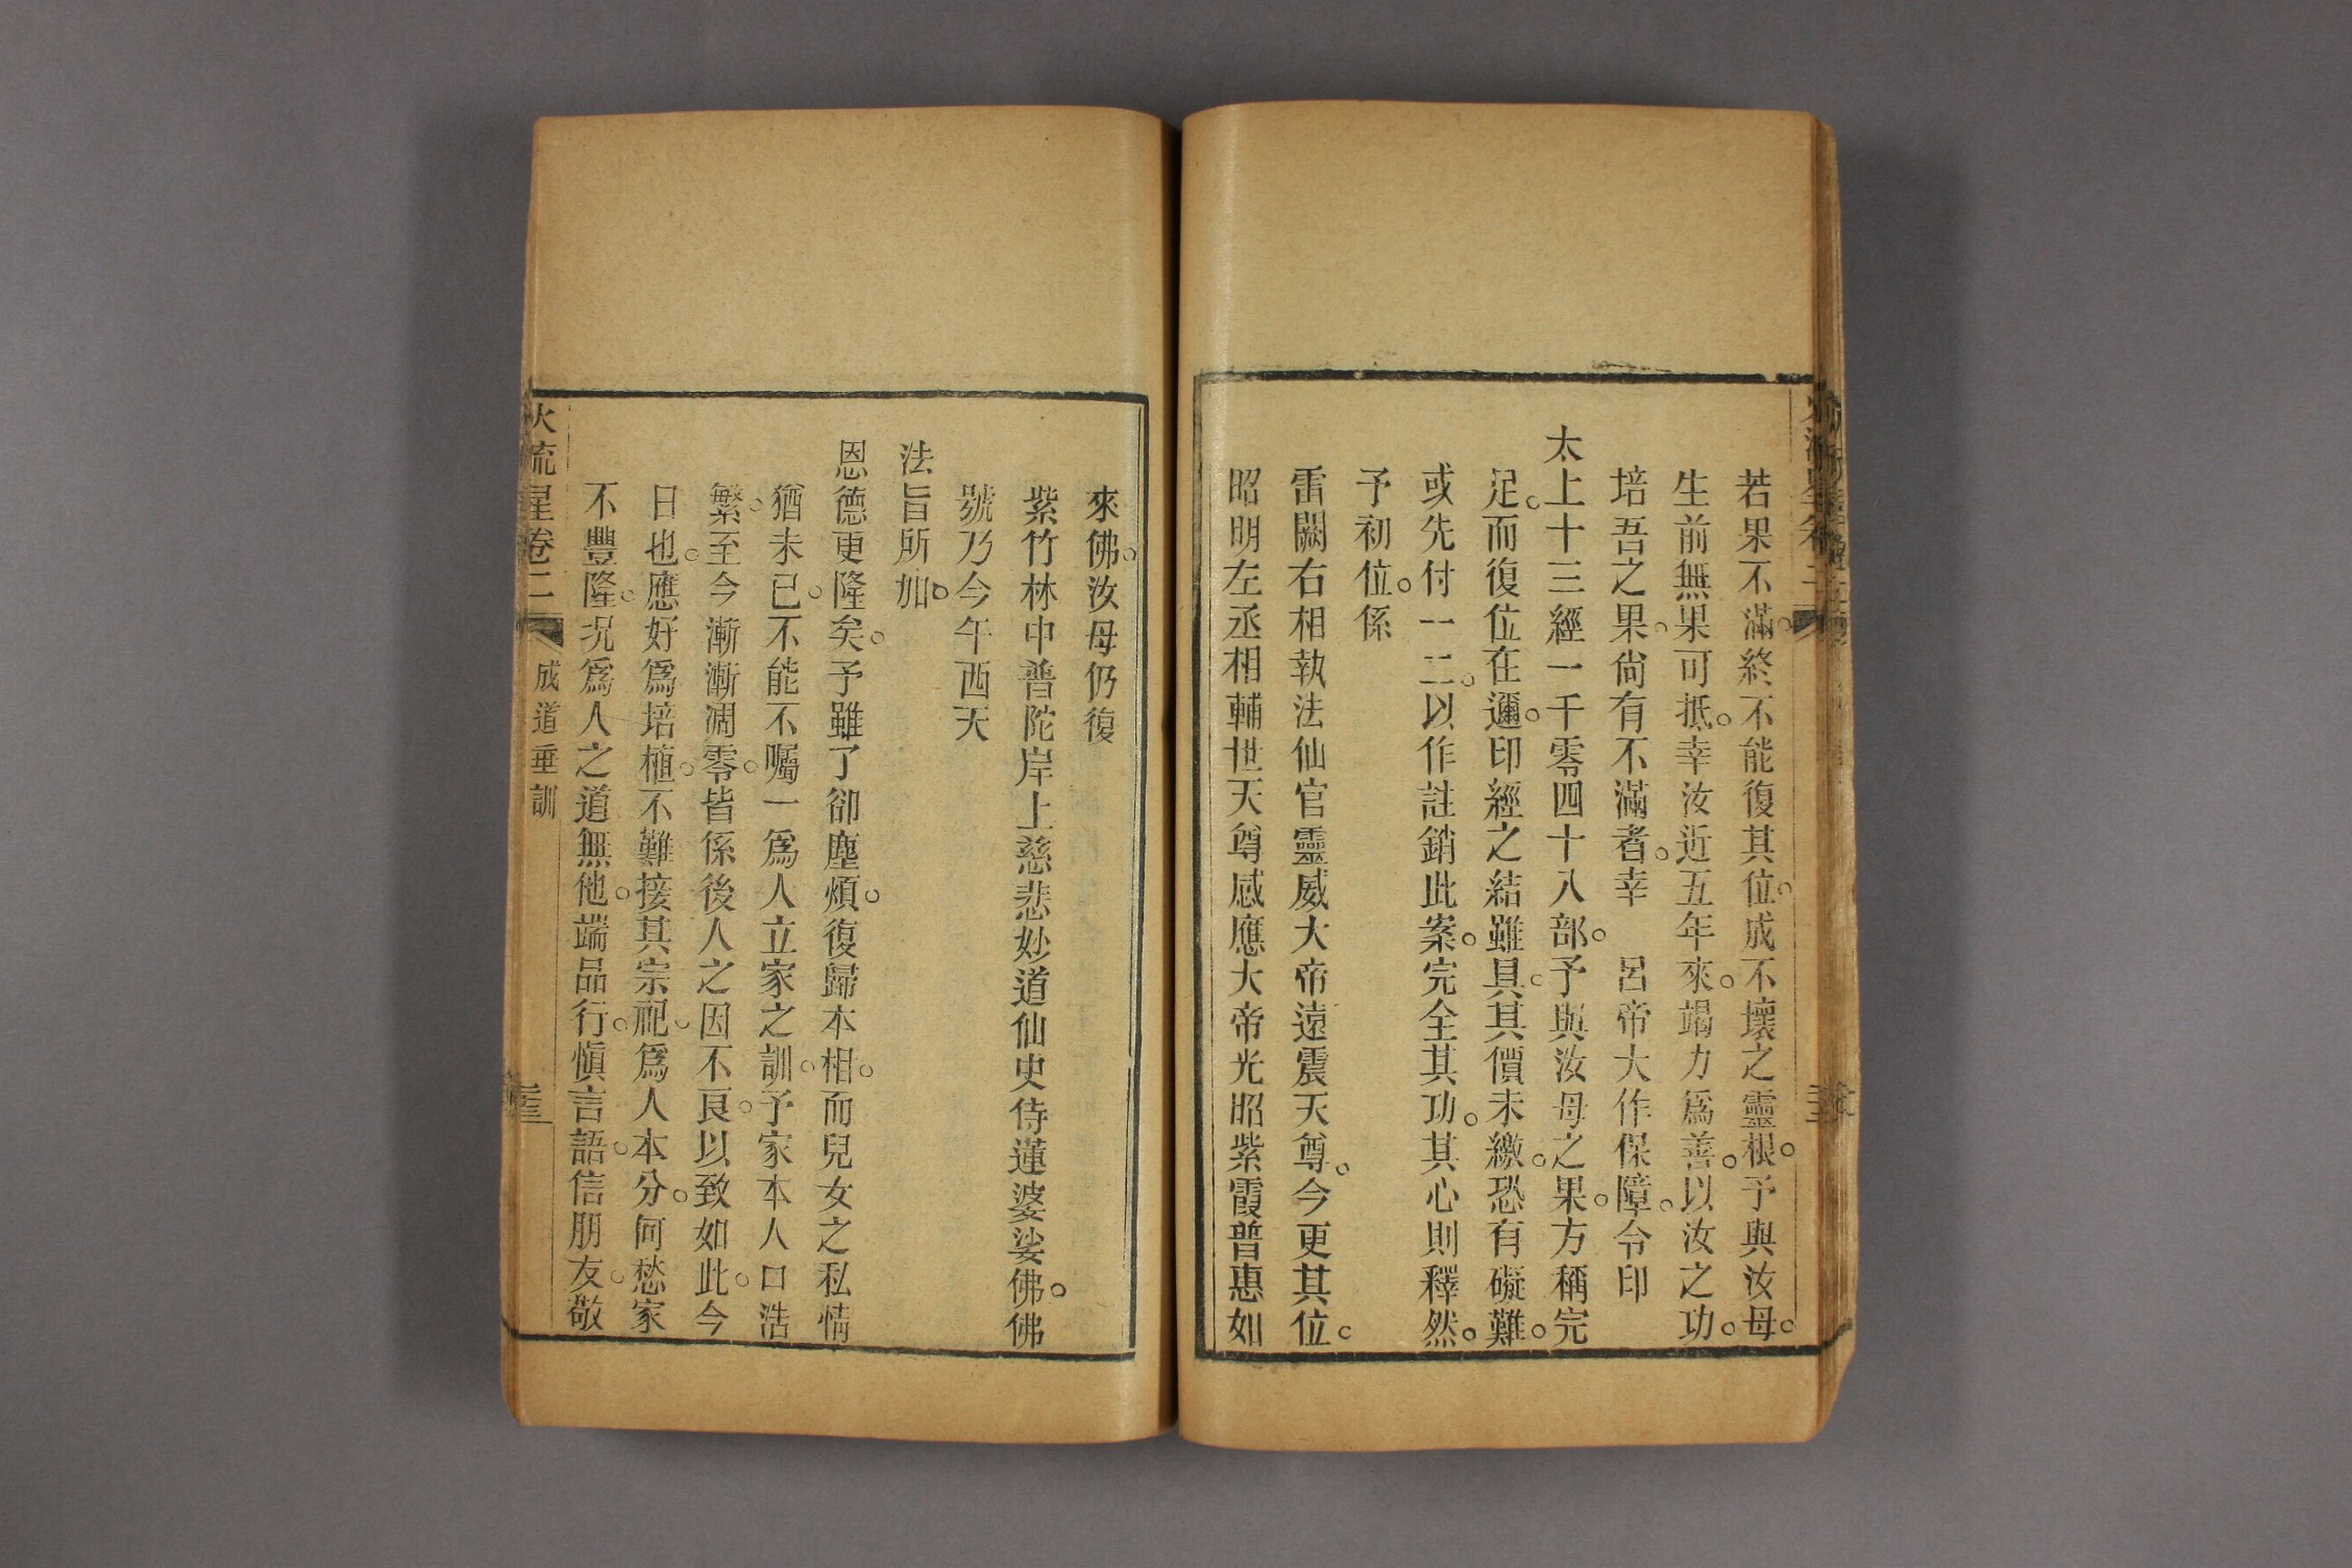 若果不滿。終不能復其位。成不壞之靈根。予與汝母。
生前無果可抵。幸汝近五年來。竭力爲善。以汝之功。
培吾之果。尙有不滿者。幸　呂帝大作保障。令印
太上十三經一千零四十八部。予與汝母之果。方稱完
足。而復位在邇。印經之結雖具。其價未繳。恐有礙難。
或先付一二。以作註銷此案。完全其功。其心則釋然。
予初位。係
雷闕右相執法仙官靈威大帝遠震天尊。今更其位。
昭明左丞相輔世天尊感應大帝光昭紫霞普惠如
來佛。汝母仍復
紫竹林中普陀岸上慈悲妙道仙史侍蓮婆娑佛。佛
號乃今午西天
法旨所加。
恩德更隆矣。予雖了卻塵煩。復歸本相。而兒女之私情
猶未已。不能不囑一爲人立家之訓。予家本人口浩
繁。至今漸漸凋零。皆係後人之因不良。以致如此。今
日也。應好爲培植。不難接其宗祀。爲人本分。何愁家
不豐隆。況爲人之道無他。端品行。愼言語。信朋友。敬
火流星卷二　成道垂訓